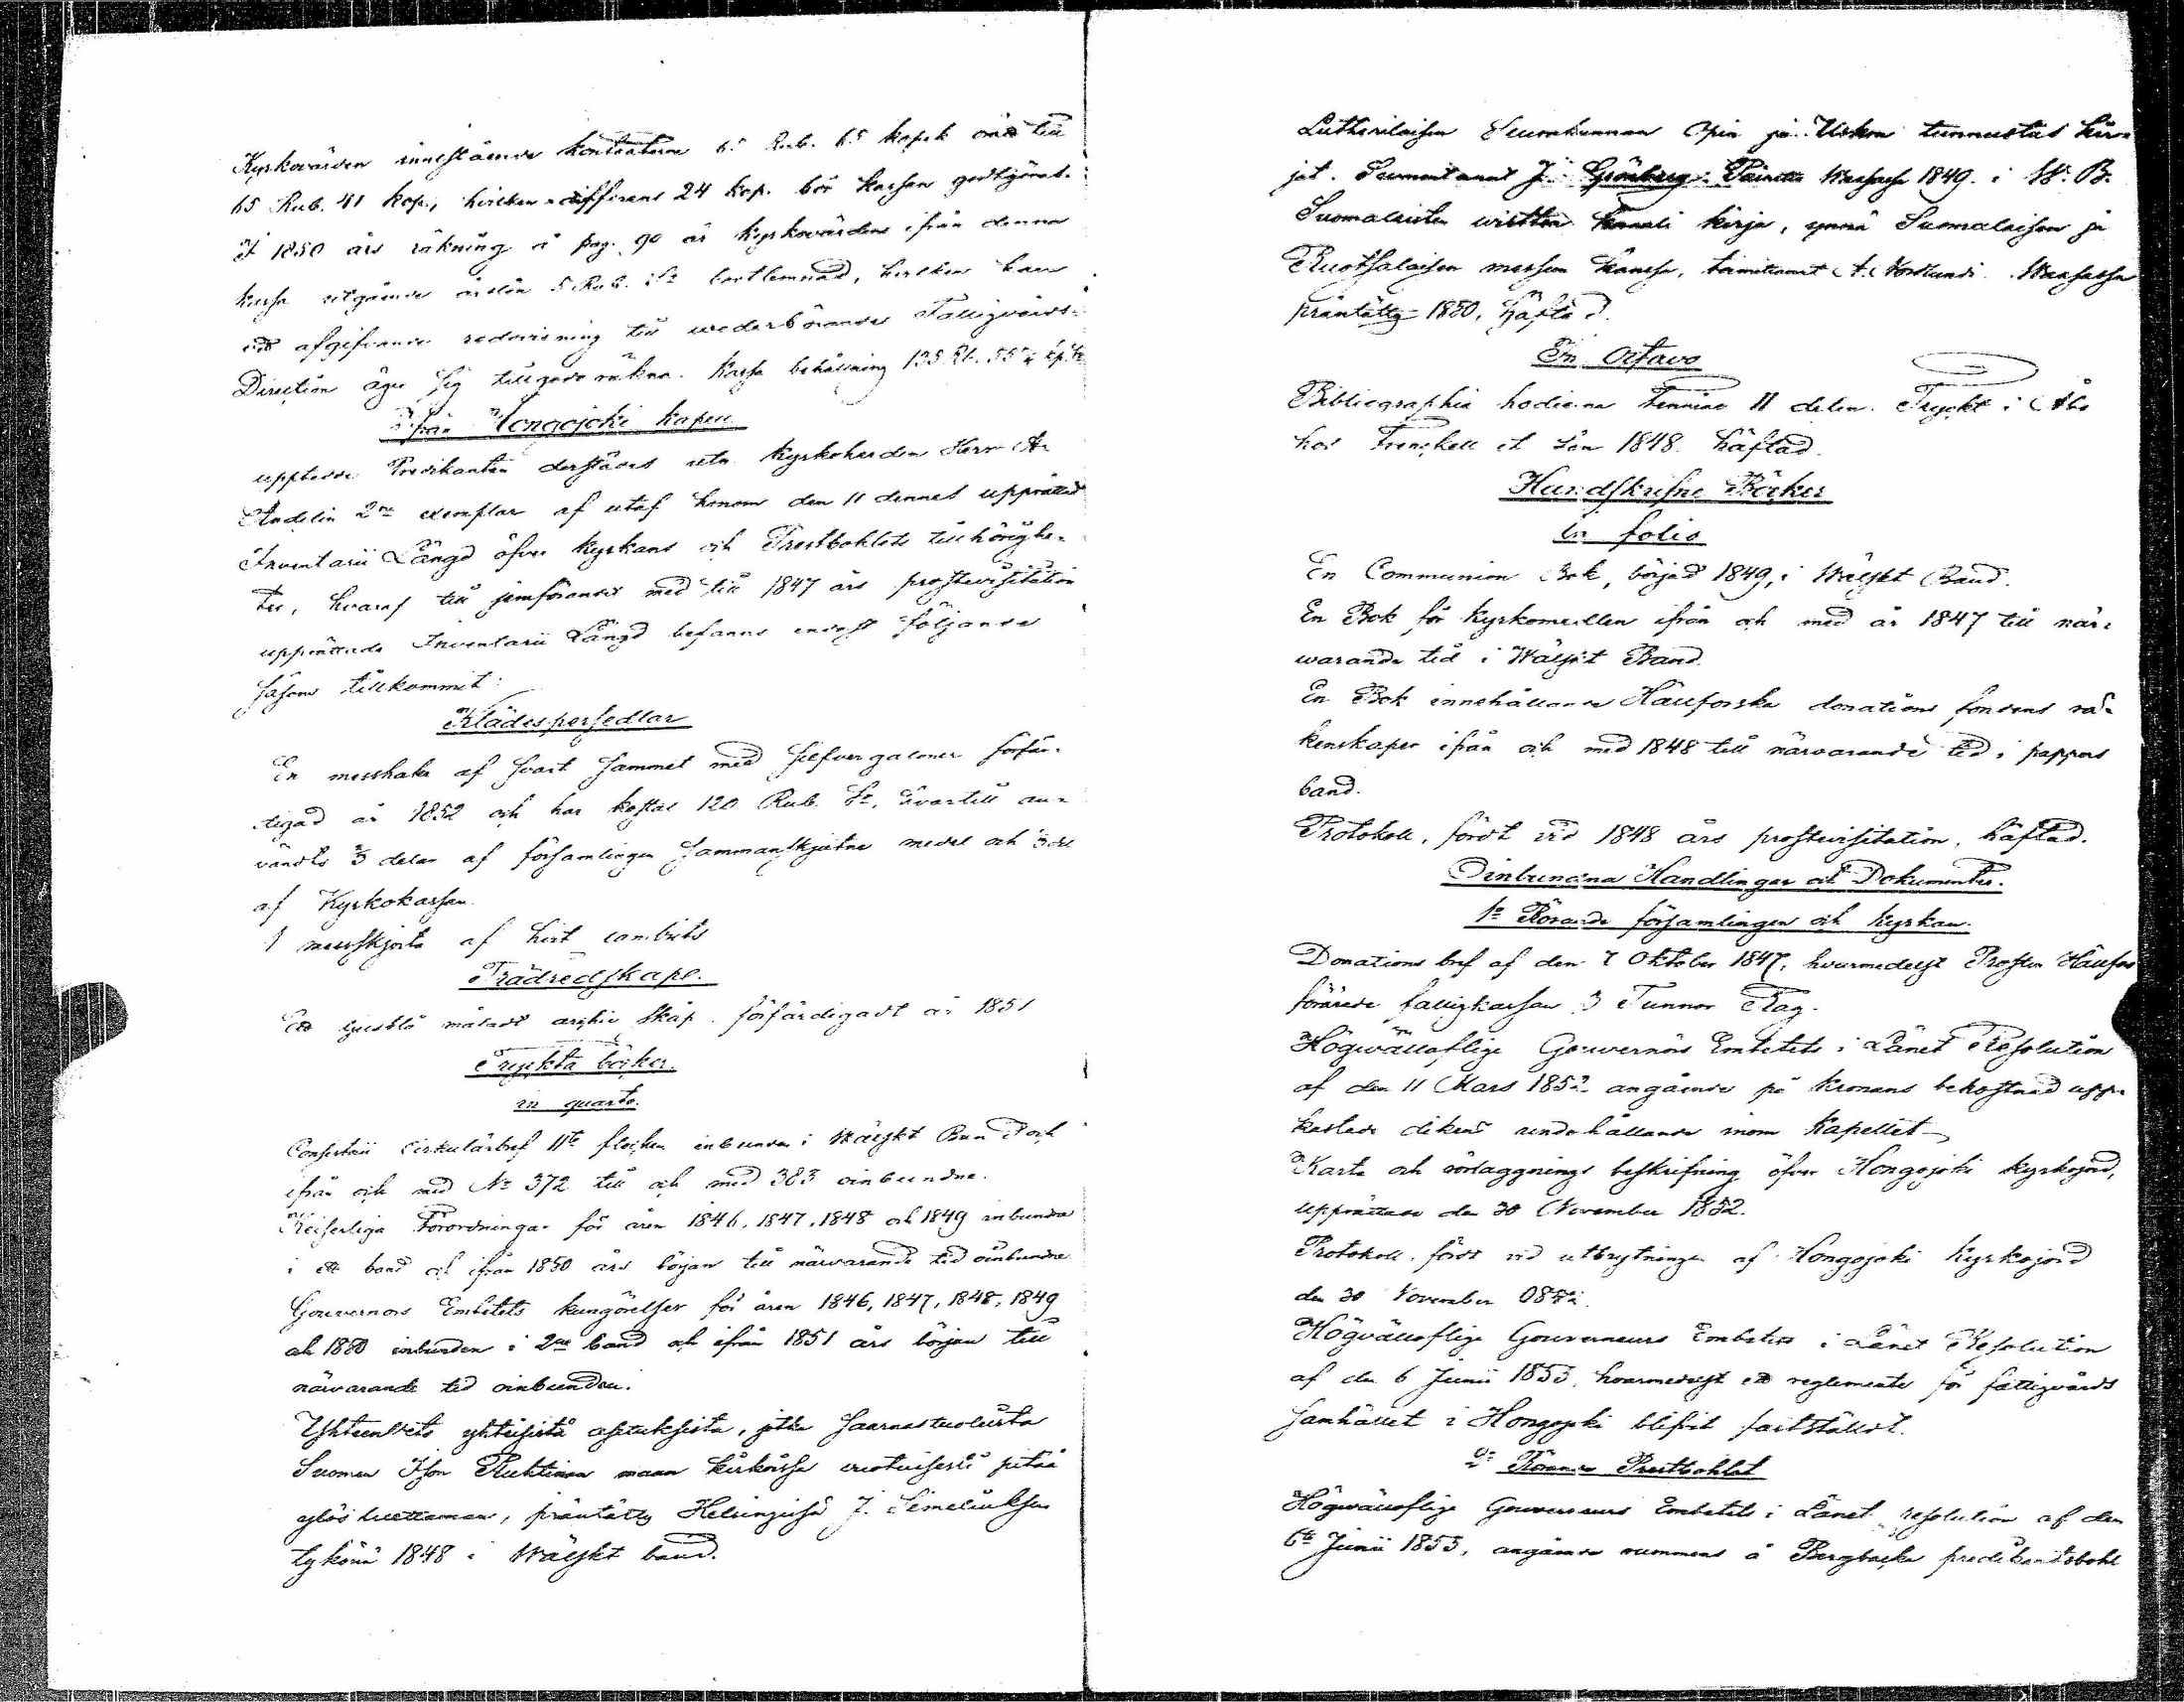 Kyrkovärden innestående 65 Rub. 65 kopek till
65 Rub. 41 kop., hvilken differens 24 kop. bör kassan godtgöras.
I 1850 års räkning å pag. 90 är kyrkovärden ifrån denna
kassa utgående årslön 5 Rub. Sr bortlemnad, hvilken han
afgifvande redovisning till wederbörande Fattigvårds
Direction äger sig tillgodo räkna. Kassa behållning 135 Rb.
Ifrån Hongojoki kapell
uppteddes Predikanten derstädes Kyrkoherden Herr A.
Andelin 2ne exemplar af utaf honom den 11 dennes upprättad
Inventarii Längd öfver Kyrkans och Prestbohlets tillhörighe-
ter, hvaraf till jemförande med till 1847 års prostevisitation
upprättade Inventarii Längd befanns endast följande
såsom tillkommit:
Klädespersedlar
En messhake af svart sammet med silfvergaloner förfär-
digad år 1852 och har kostat 120 Rub. Sr, hvartill an-
vändts 2/3 delar af församlingen sammanskjutne medel och 1/3 del
af Kyrkokassan.
1 messkjorta af hvit cambrits
Trädredskape.
Ett ljusblå måladt archiv skåp förfärdigadt år 1851
Tryckta böcker.
in quarto.
Consistorii Cirkulärbref 11te flocken inbunden i Wälskt Band och
ifrån och med No 372 till och med 383 oinbundne.
Keiserliga Förordningar för åren 1846, 1847, 1848 och 1849 inbundna
i ett band och ifrån 1850 års början till närvarande tid oinbundne
Gouvernörs Embetets kungörelser för åren 1846, 1847, 1848, 1849
och 1850 inbunden i 2ne band och ifrån 1851 års början till
närvarande tid oinbunden.
Yhteenveto yhteisistä asetuksista, jotka saarnastuolista
Suomen Ison Ruhtinan maan kirkoissa vuotuisesti pitää
ylös luettaman, präntätty Helsingissä J. Simeliuksen
tykönä 1848 i Wälskt band.
Lutherilaisen Seurakunnan Opin ja Uskon tunnustus kir-
jat. Suomentanut J. Grönberg. Waasassa 1849. i W. B.
Suomalaisten kirja, ynnä Suomalaisen ja
Ruotsalaisen messun kanssa, toimittanut A. Nordlund. Waasassa
präntätty 1850, häftad.
In Octavo
Bibliographia hodierna Fenniae II delen. Tryckt i Åbo
hos Frenckell et Son 1848. häftad.
Handskrifne Böcker
in folio
En Communion Bok, börjad 1849, i Wälskt Band.
En Bok för kyrkomedlen ifrån och med år 1847 till när-
warande tid i Wälskt Band.
En Bok innehållande Hällforska donations fondens rä-
kenskaper ifrån och med 1848 till närvarande tid i pappers
band.
Protokoll, fördt vid 1848 års prostevisitation, häftad.
Oinbundna Handlingar och Dokumenter.
1o Rörande församlingen och kyrkan.
Donations bref af den 7 Oktober 1847, hvarmedelst Prosten Hällfors
förärede fattigkassan 3 Tunnor Råg.
Högwällofliga Gouvernörs Embetets i Länet Resolution
af den 11 Mars 1852 angående på kronans bekostnad upp-
kastade dikens underhållande inom Kapellet
Karta och beskrifning öfver Hongojoki kyrkojord,
upprättade den 30 November 1852.
Protokoll fördt vid utbrytningen af Hongojoki Kyrkojord
den 30 November
Högvällofliga Gouverneurs Embetets i Länet Resolution
af den 6 Junii 1853, hvarmedelst ett reglemente för fattigvårds
samhället i Hongojoki blifvit fastställdt.
2o Rörande Prestbohlet
Högwällofliga Gouverneurs Embetets i Länet resolution af den
6te Junii 1853, angående rummens å Bergbacka predikantsbohl